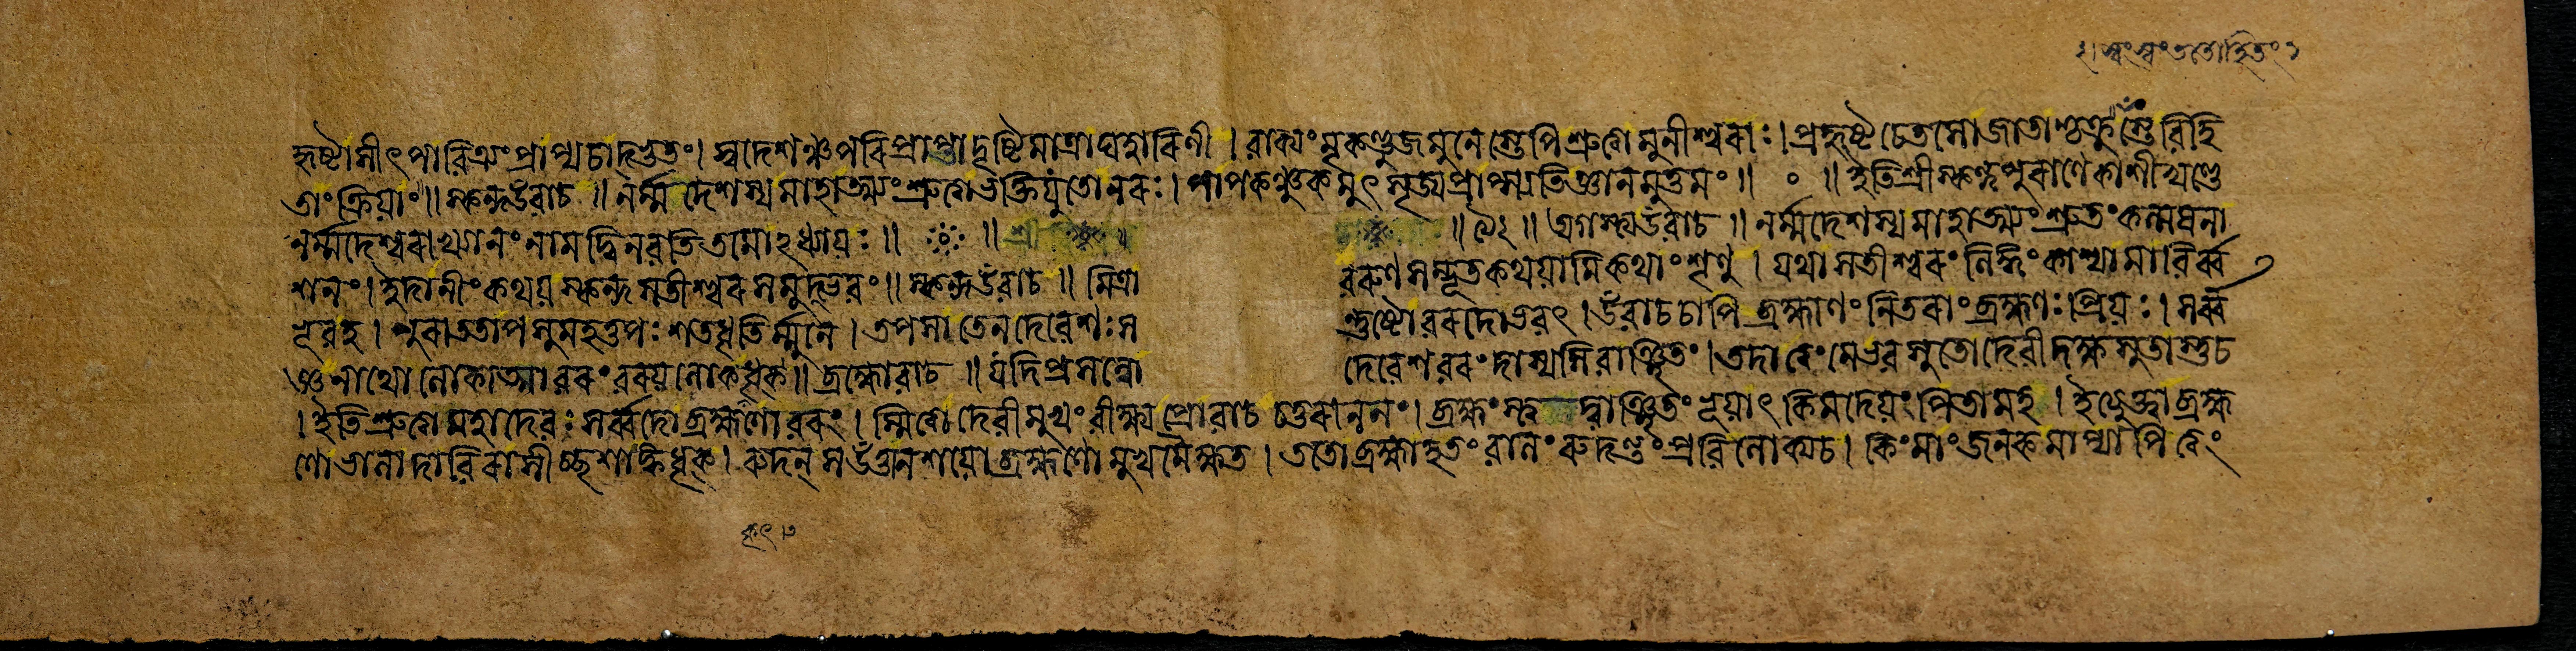 হৃষ্টাসীৎপাবিত্র্যংপ্রাপ্যচাদ্ভুতং। স্বদেশঞ্চপরিপ্রাপ্তাদৃষ্টিমাত্রাঘহাবিণী । বাক্যংমৃকণ্ডুজমুনেস্তেপিশ্রুত্বেমুনীশ্বরাঃ। প্রহৃষ্টচেতসোজাতাশ্চক্রুস্তেবিহি
তাংক্রিয়াং॥ স্কন্দউবাচ ॥ নর্ম্মদেশস্যমাহাত্ম্যংশ্রুত্বাভক্তিযুতোনরঃ। পাপকঞ্চুকমুৎসৃজ্যপ্রাপ্স্যতিজ্ঞানমুত্তমং॥ ॰ ॥ ইতিশ্রীস্কন্দপুরাণেকাশীখণ্ডে
নর্ম্মদেশ্বরাখ্যানংনামদ্বিনবতিতমোঽধ্যায়ঃ ॥ ॥ ॥ ॥ অগস্ত্যউবাচ ॥ নর্ম্মদেশস্যমাহাত্ম্যংশ্রুতংকল্মষনা
শনং। ইদানীংকথয়স্কন্দসতীশ্বরসমুদ্ভবং॥ স্কন্দউবাচ ॥ মিত্রা বরুণসম্ভূতকথয়ামিকথাংশৃণু । যথাসতীশ্বরংলিঙ্গংকাশ্যামাবির্ব্ব
ভূবহ । পুরাততাপসুমহত্তপঃশতধৃতির্ম্মুনে । তপসাতেনদেবেশঃস ন্তুষ্টোবরদোভবৎ । উবাচচাপিব্রহ্মাণংনিতরাংব্রহ্মণঃপ্রিয়ঃ । সর্ব্ব
জ্ঞনাথোলোকাত্মাবরংবরয়লোককৃৎ॥ ব্রহ্মোবাচ ॥ যদিপ্রসন্নো দেবেশবরংদাস্যসিবাঞ্ছিতং। তদাত্বংমেভবসুতোদেবীদক্ষসুতাস্তুচ
। ইতিশ্রুত্বামহাদেবঃসর্ব্বদোব্রহ্মণোবরং। স্মিত্বাদেবীমুখংবীক্ষ্যপ্রোবাচচতুরাননং। ব্রহ্মং দ্বাঞ্ছিতংভূয়াৎকিমদেয়ংপিতামহ । ইত্যুক্ত্বাব্রহ্ম
ণোভালাদাবিরাসীচ্ছশাঙ্কধৃক্। রুদন্সউত্তানশয়োব্রহ্মণোমুখমৈক্ষত । ততোব্রহ্মাহতংবালংরুদন্তংপ্রবিলোক্যচ। কিংমাংজনকমাপ্যাপিত্বং